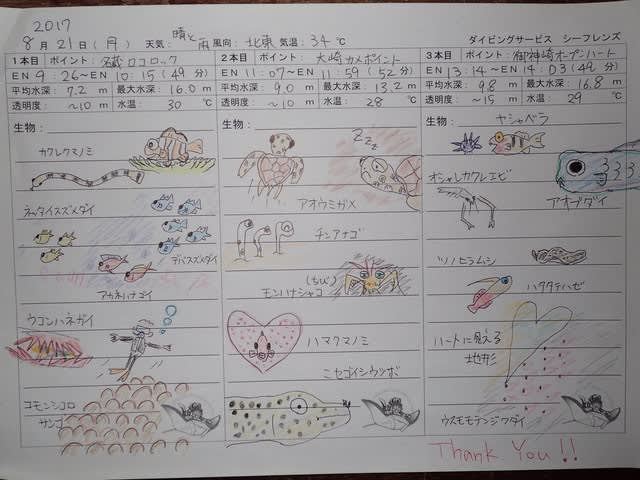 2017
8月21日(月) 天気：晴と雨 風向：北東 気温：34℃ ダイビングサービス シーフレンズ
1本目 ポイント：名蔵ロコロック
EN 9：26～EN 10：15（49分）
平均水深：7.2 m 最大水深：16.0 m
透明度：～10 m 水温：30 ℃
生物：
カクレクマノミ
ネッタイスズメダイ
デバスズメダイ
アカネハナゴイ
ウコンハネガイ
コモンシコロ
サンゴ
2本目 ポイント：大崎カメポイント
EN 11：07～EN 11：59（52分）
平均水深：9.0 m 最大水深：13.2 m
透明度：～10 m 水温：28 ℃
生物：
Zzz
アオウミガメ
チンアナゴ
(ちび)
モンハナシャコ
ハマクマノミ
ニセゴイシウツボ
3本目 ポイント：御神崎オープンハート
EN 13：14～EN 14：03（49分）
平均水深：9.8 m 最大水深：16.8 m
透明度：～15 m 水温：29 ℃
生物：
ヤシャベラ
オシャレカクレエビ
アオブダイ
ツノヒラムシ
ハタタテハゼ
ハートに見える
地形
ウスモモテンジクダイ
Thank You!!